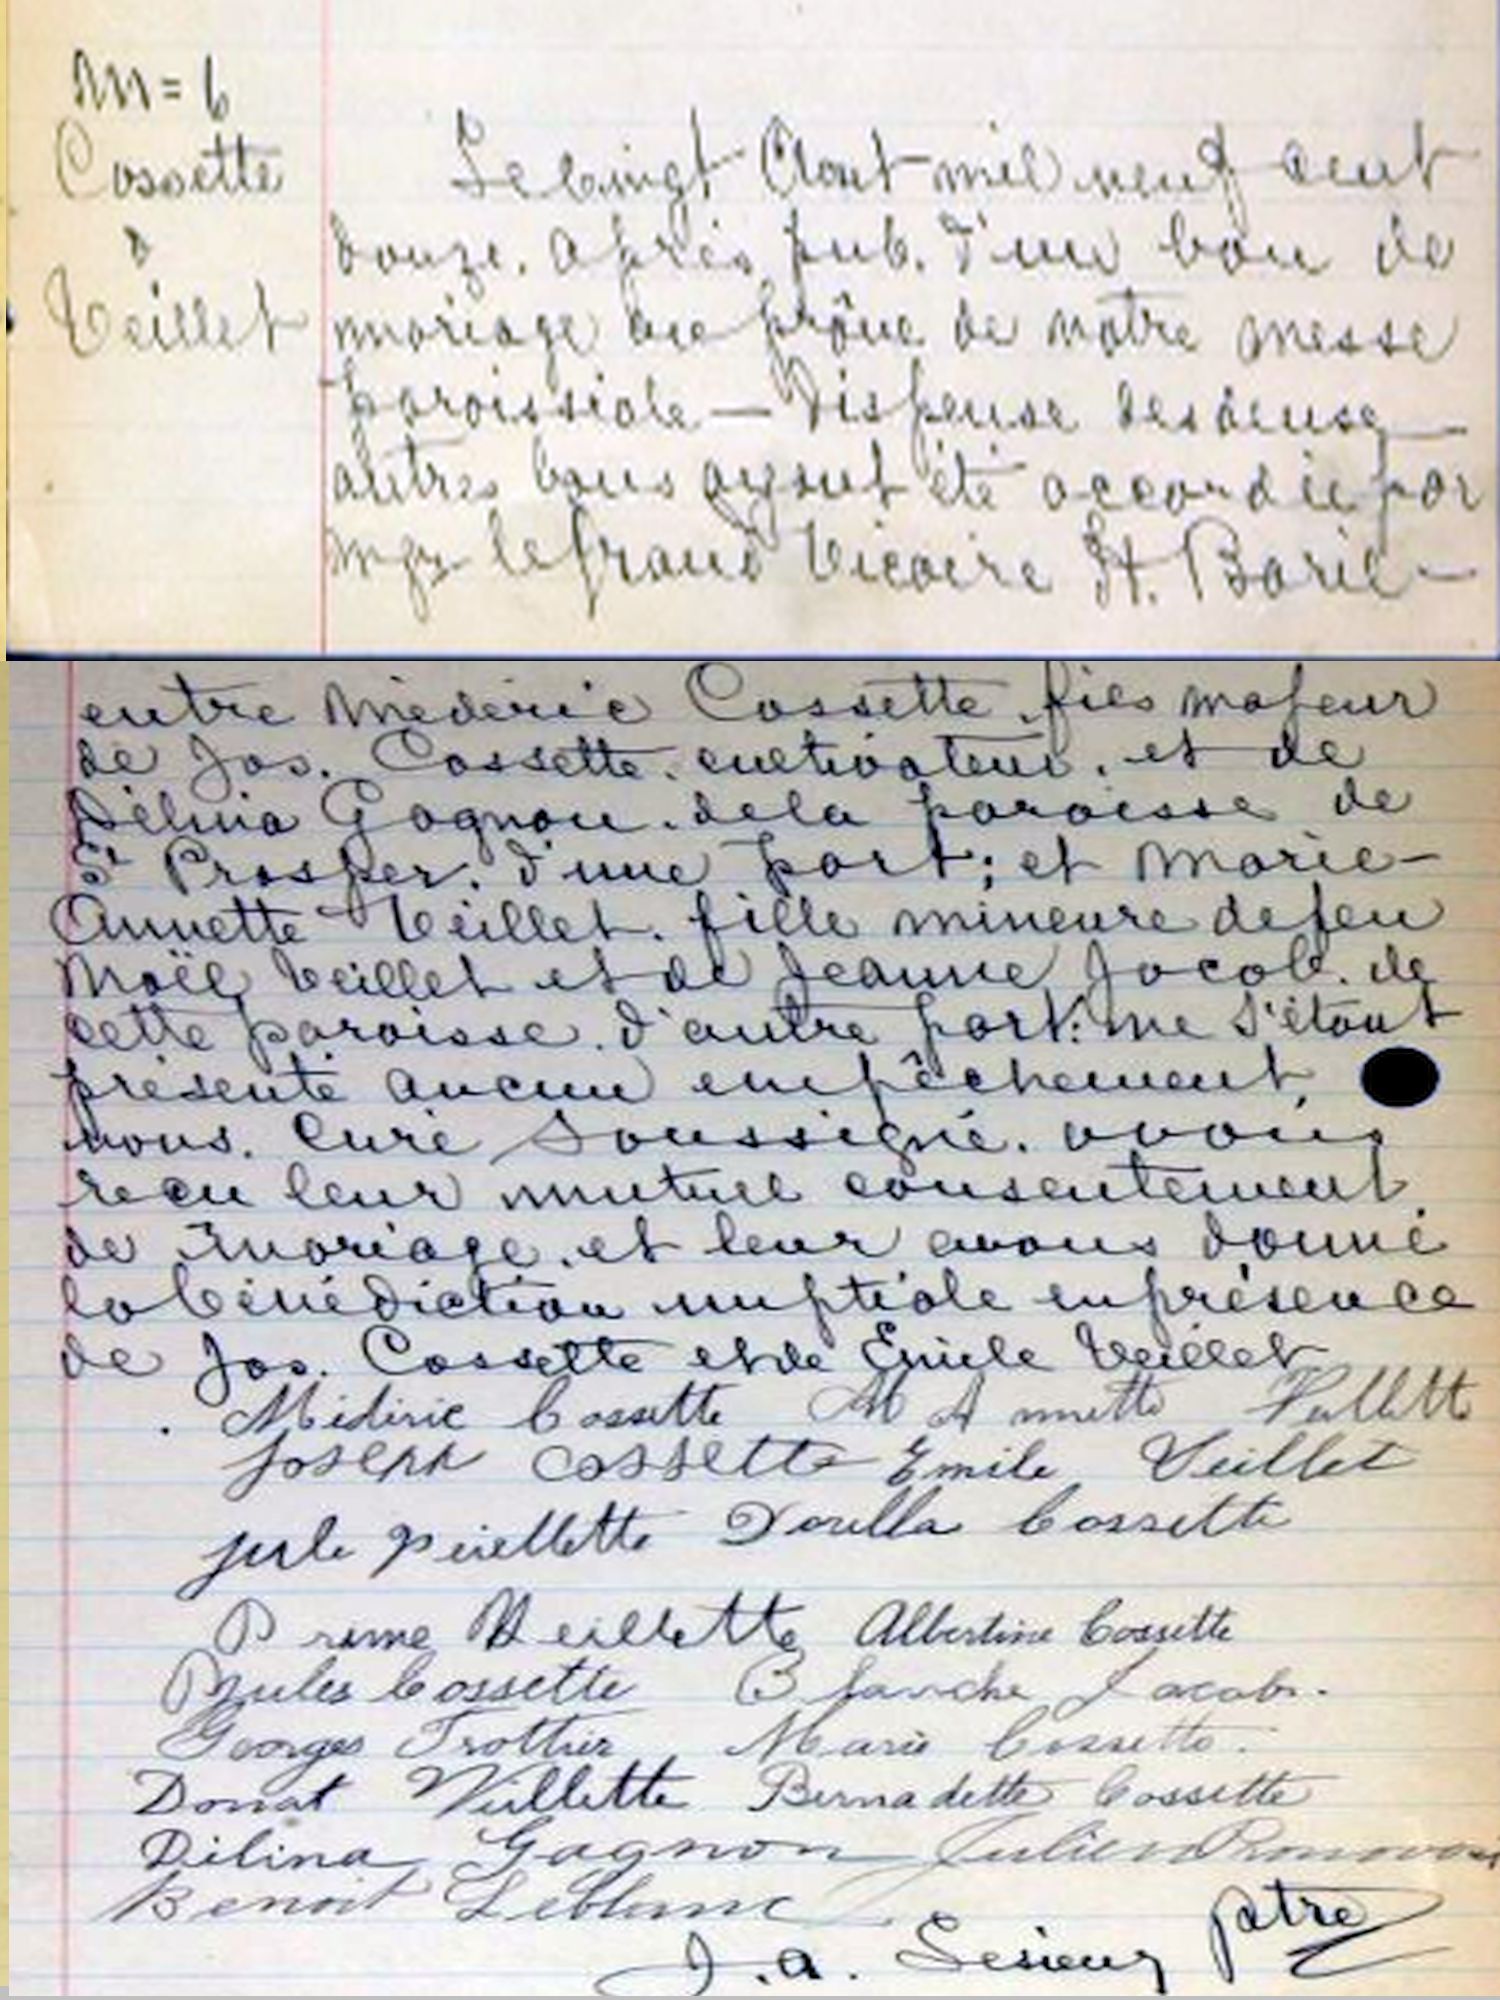 M=6
Cossette
&
Veillet
Le vingt Aout mil neuf cent
douze, après pub. d'un ban de
mariage au prône de notre messe
paroissiale — dispense des deux —
autres bans ayant été accordée par
Mgr le grand Vicaire H. Baril —
entre Médéric Cossette, fils majeur
de Jos. Cossette, cultivateur, et de
Délina Gagnon, de la paroisse de
St Prosper, d'une part; et Marie-
Annette Veillet, fille mineure de feu
Noël Veillet et de Jeanne Jacob, de
cette paroisse, d'autre part: ne s'étant
présenté aucun empêchement,
nous, Curé soussigné, avons
reçu leur mutuel consentement
de mariage, et leur avons donné
la bénédiction nuptiale en présence
de Jos. Cossette et de Emile Veillet
Médéric Cossette M A nnette Veillette
Joseph Cossette Emile Veillet
jule veillette Dorilla Cossette
Prime Veillette Albertine Cossette
Jules Cossette Blanche Jacob.
Georges Trottier Marie Cossette.
Donat Veillette Bernadette Cossette
Délina Gagnon Julien
Benoit Leblanc
J. A. Lesieur ptre